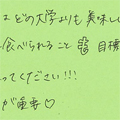 はどの大学よりも美味しい
食べられること 目標
ってください!!!
が重要♡